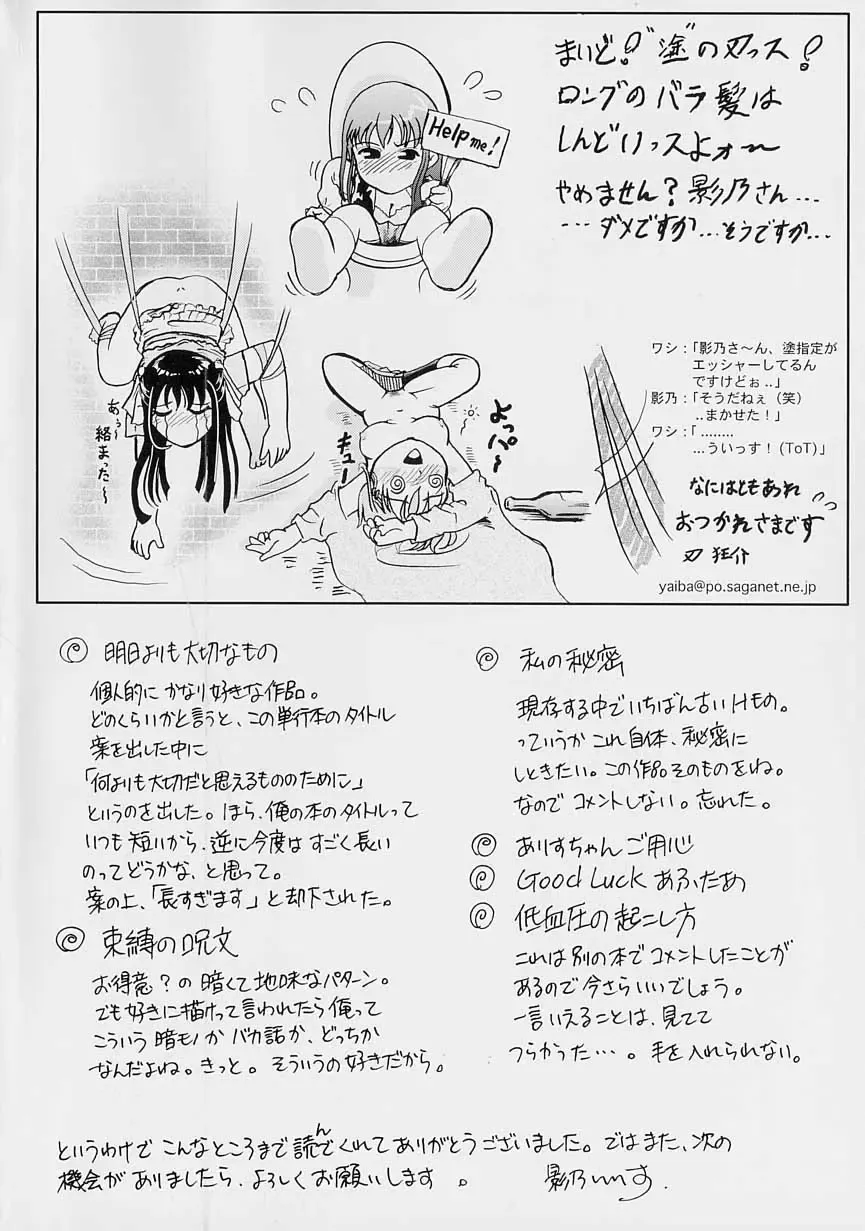 まいど! "塗"の刃っス!
ロングのバラ髪は
しんどいっスよォ〜
やめません?影乃さん…
…ダメですか…そうですか…
Help me!
あぅ〜
絡まった〜
キュー
よっパ〜
ワシ:「影乃さ〜ん、塗指定が
エッシャーしてるん
ですけどぉ‥」
影乃:「そうだねぇ(笑)
‥まかせた!」
ワシ:「‥‥‥‥
…ういっす!(ToT)」
なにはともあれ
おつかれさまです
刃 狂介
yaiba@po.saganet.ne.jp
明日よりも大切なもの
個人的に かなり好きな作品。
どのくらいかと言うと、この単行本のタイトル
案を出した中に
「何よりも大切だと思えるもののために」
というのを出した。ほら、俺の本のタイトルって
いつも短いから、逆に今度は すごく長い
のってどうかな、と思って。
案の上、「長すぎます」と却下された。
束縛の呪文
お得意?の 暗くて地味なパターン。
でも好きに描けって言われたら俺って
こういう暗モノか バカ話か、どっちか
なんだよね。きっと。そういうの好きだから。
私の秘密
現存する中でいちばん古いHもの。
っていうか これ自体、秘密に
しときたい。この作品そのものをね。
なので コメントしない。忘れた。
ありすちゃんご用心
Good Luck あふたあ
低血圧の起こし方
これは別の本でコメントしたことが
あるので今さらいいでしょう。
一言いえることは、見てて
つらかった…。手を入れられない。
というわけで こんなところまで読んでくれてありがとうございました。ではまた、次の
機会がありましたら、よろしくお願いします。 影乃いりす.